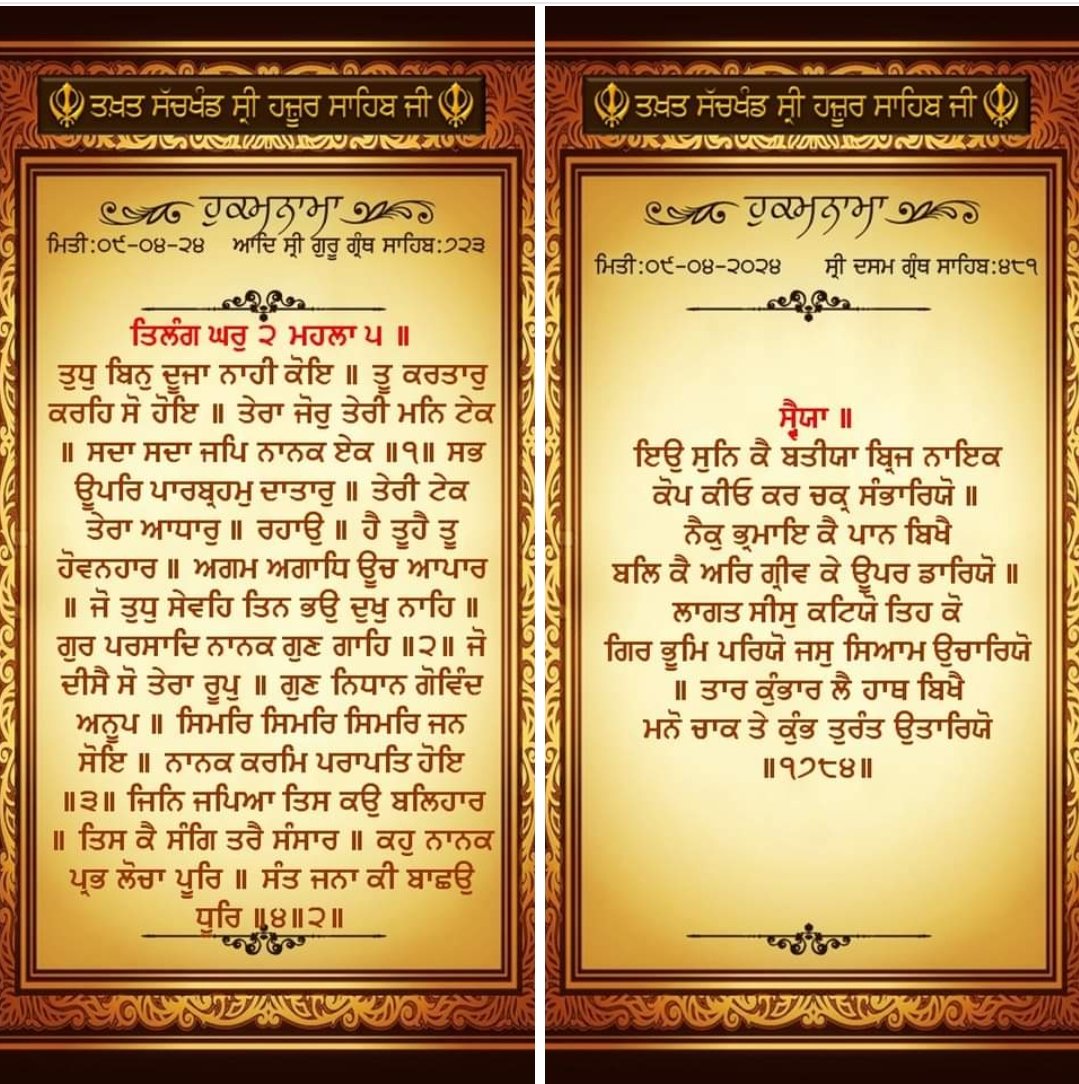 ਤਖ਼ਤ ਸੱਚਖੰਡ ਸ੍ਰੀ ਹਜ਼ੂਰ ਸਾਹਿਬ ਜੀ
ਹੁਕਮਨਾਮਾ
ਮਿਤੀ:੦੯-੦੪-੨੪ ਆਦਿ ਸ੍ਰੀ ਗੁਰੂ ਗ੍ਰੰਥ ਸਾਹਿਬ:੭੨੩
ਤਿਲੰਗ ਘਰੁ ੨ ਮਹਲਾ ੫ ॥
ਤੁਧੁ ਬਿਨੁ ਦੂਜਾ ਨਾਹੀ ਕੋਇ ॥ ਤੂ ਕਰਤਾਰੁ
ਕਰਹਿ ਸੋ ਹੋਇ ॥ ਤੇਰਾ ਜੋਰੁ ਤੇਰੀ ਮਨਿ ਟੇਕ
॥ ਸਦਾ ਸਦਾ ਜਪਿ ਨਾਨਕ ਏਕ ॥੧॥ ਸਭ
ਊਪਰਿ ਪਾਰਬ੍ਰਹਮੁ ਦਾਤਾਰੁ ॥ ਤੇਰੀ ਟੇਕ
ਤੇਰਾ ਆਧਾਰੁ ॥ ਰਹਾਉ ॥ ਹੈ ਤੂਹੈ ਤੂ
ਹੋਵਨਹਾਰ ॥ ਅਗਮ ਅਗਾਧਿ ਊਚ ਆਪਾਰ
॥ ਜੋ ਤੁਧੁ ਸੇਵਹਿ ਤਿਨ ਭਉ ਦੁਖੁ ਨਾਹਿ ॥
ਗੁਰ ਪਰਸਾਦਿ ਨਾਨਕ ਗੁਣ ਗਾਹਿ ॥੨॥ ਜੋ
ਦੀਸੈ ਸੋ ਤੇਰਾ ਰੂਪੁ ॥ ਗੁਣ ਨਿਧਾਨ ਗੋਵਿੰਦ
ਅਨੂਪ ॥ ਸਿਮਰਿ ਸਿਮਰਿ ਸਿਮਰਿ ਜਨ
ਸੋਇ ॥ ਨਾਨਕ ਕਰਮਿ ਪਰਾਪਤਿ ਹੋਇ
॥੩॥ ਜਿਨਿ ਜਪਿਆ ਤਿਸ ਕਉ ਬਲਿਹਾਰ
॥ ਤਿਸ ਕੈ ਸੰਗਿ ਤਰੈ ਸੰਸਾਰ ॥ ਕਹੁ ਨਾਨਕ
ਪ੍ਰਭ ਲੋਚਾ ਪੂਰਿ ॥ ਸੰਤ ਜਨਾ ਕੀ ਬਾਛਉ
ਧੂਰਿ ॥੪॥੨॥
ਤਖ਼ਤ ਸੱਚਖੰਡ ਸ੍ਰੀ ਹਜ਼ੂਰ ਸਾਹਿਬ ਜੀ
ਹੁਕਮਨਾਮਾ
ਮਿਤੀ:੦੯-੦੪-੨੦੨੪ ਸ੍ਰੀ ਦਸਮ ਗ੍ਰੰਥ ਸਾਹਿਬ:੪੮੧
ਸ੍ਵੈਯਾ ॥
ਇਉ ਸੁਨਿ ਕੈ ਬਤੀਯਾ ਬ੍ਰਿਜ ਨਾਇਕ
ਕੋਪ ਕੀਓ ਕਰ ਚਕ੍ਰ ਸੰਭਾਰਿਯੋ ॥
ਨੈਕੁ ਭ੍ਰਮਾਇ ਕੈ ਪਾਨ ਬਿਖੈ
ਬਲਿ ਕੈ ਅਰਿ ਗ੍ਰੀਵ ਕੇ ਊਪਰ ਡਾਰਿਯੋ ॥
ਲਾਗਤ ਸੀਸੁ ਕਟਿਯੋ ਤਿਹ ਕੋ
ਗਿਰ ਭੂਮਿ ਪਰਿਯੋ ਜਸੁ ਸਿਆਮ ਉਚਾਰਿਯੋ
॥ ਤਾਰ ਕੁੰਭਾਰ ਲੈ ਹਾਥ ਬਿਖੈ
ਮਨੋ ਚਾਕ ਤੇ ਕੁੰਭ ਤੁਰੰਤ ਉਤਾਰਿਯੋ
॥੧੭੮੪॥